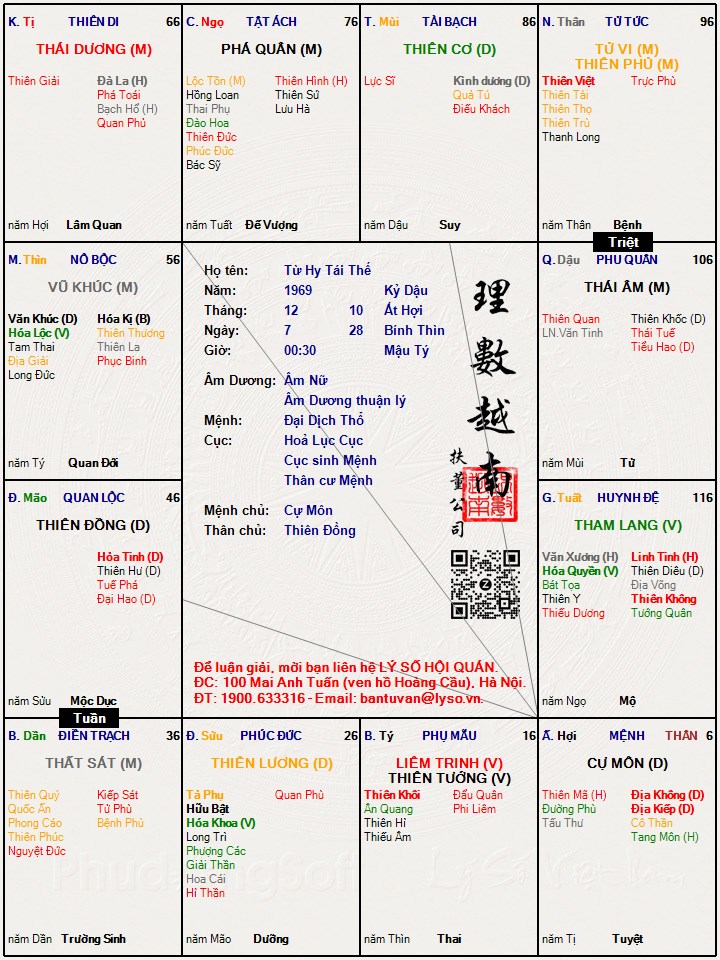 K. Tị THIÊN DI 66
THÁI DƯƠNG (M)
Thiên Giải
Đà La (H)
Phá Toái
Bạch Hổ (H)
Quan Phủ
năm Hợi Lâm Quan
C. Ngọ TẬT ÁCH 76
PHÁ QUÂN (M)
Lộc Tồn (M)
Hồng Loan
Thai Phụ
Đào Hoa
Thiên Đức
Phúc Đức
Bác Sỹ
Thiên Hình (H)
Thiên Sứ
Lưu Hà
năm Tuất Đế Vượng
T. Mùi TÀI BẠCH 86
THIÊN CƠ (D)
Lực Sĩ
Kình dương (D)
Quả Tú
Điếu Khách
năm Dậu Suy
N. Thân TỬ TỨC 96
TỬ VI (M)
THIÊN PHỦ (M)
Thiên Việt
Thiên Tài
Thiên Thọ
Thiên Trù
Thanh Long
Trực Phù
năm Thân Bệnh
Triệt
M. Thìn NÔ BỘC 56
VŨ KHÚC (M)
Văn Khúc (D)
Hóa Lộc (V)
Tam Thai
Địa Giải
Long Đức
Hóa Kị (B)
Thiên Thương
Thiên La
Phục Binh
năm Tý Quan Đới
Họ tên: Từ Hy Tái Thế
Năm: 1969 Kỷ Dậu
Tháng: 12 10 Ất Hợi
Ngày: 7 28 Bính Thìn
Giờ: 00:30 Mậu Tý
Âm Dương: Âm Nữ
Âm Dương thuận lý
Mệnh: Đại Dịch Thổ
Cục: Hoả Lục Cục
Cục sinh Mệnh
Thân cư Mệnh
Mệnh chủ: Cự Môn
Thân chủ: Thiên Đồng
理數越南
扶董公司
Z
Để luận giải, mời bạn liên hệ LÝ SỐ HỘI QUÁN.
ĐC: 100 Mai Anh Tuấn (ven hồ Hoàng Cầu), Hà Nội.
ĐT: 1900.633316 - Email: bantuvan@lyso.vn.
Q. Dậu PHU QUÂN 106
THÁI ÂM (M)
Thiên Quan
LN.Văn Tinh
Thiên Khốc (D)
Thái Tuế
Tiểu Hao (D)
năm Mùi Tử
Đ. Mão QUAN LỘC 46
THIÊN ĐỒNG (D)
Hỏa Tinh (D)
Thiên Hư (D)
Tuế Phá
Đại Hao (D)
năm Sửu Mộc Dục
Tuần
G. Tuất HUYNH ĐỆ 116
THAM LANG (V)
Văn Xương (H)
Hóa Quyền (V)
Bát Tọa
Thiên Y
Thiếu Dương
Linh Tinh (H)
Thiên Diêu (D)
Địa Võng
Thiên Không
Tướng Quân
năm Ngọ Mộ
B. Dần ĐIỀN TRẠCH 36
THẤT SÁT (M)
Thiên Quý
Quốc Ấn
Phong Cáo
Thiên Phúc
Nguyệt Đức
Kiếp Sát
Tử Phù
Bệnh Phù
năm Dần Trường Sinh
Đ. Sửu PHÚC ĐỨC 26
THIÊN LƯƠNG (D)
Tả Phụ
Hữu Bật
Hóa Khoa (V)
Long Trì
Phượng Các
Giải Thần
Hoa Cái
Hỉ Thần
Quan Phù
năm Mão Dưỡng
B. Tý PHỤ MẪU 16
LIÊM TRINH (V)
THIÊN TƯỚNG (V)
Thiên Khôi
Ân Quang
Thiên Hỉ
Thiếu Âm
Đẩu Quân
Phi Liêm
năm Thìn Thai
Ấ. Hợi MỆNH THÂN 6
CỰ MÔN (D)
Thiên Mã (H)
Đường Phù
Tấu Thư
Địa Không (D)
Địa Kiếp (D)
Cô Thần
Tang Môn (H)
năm Tị Tuyệt